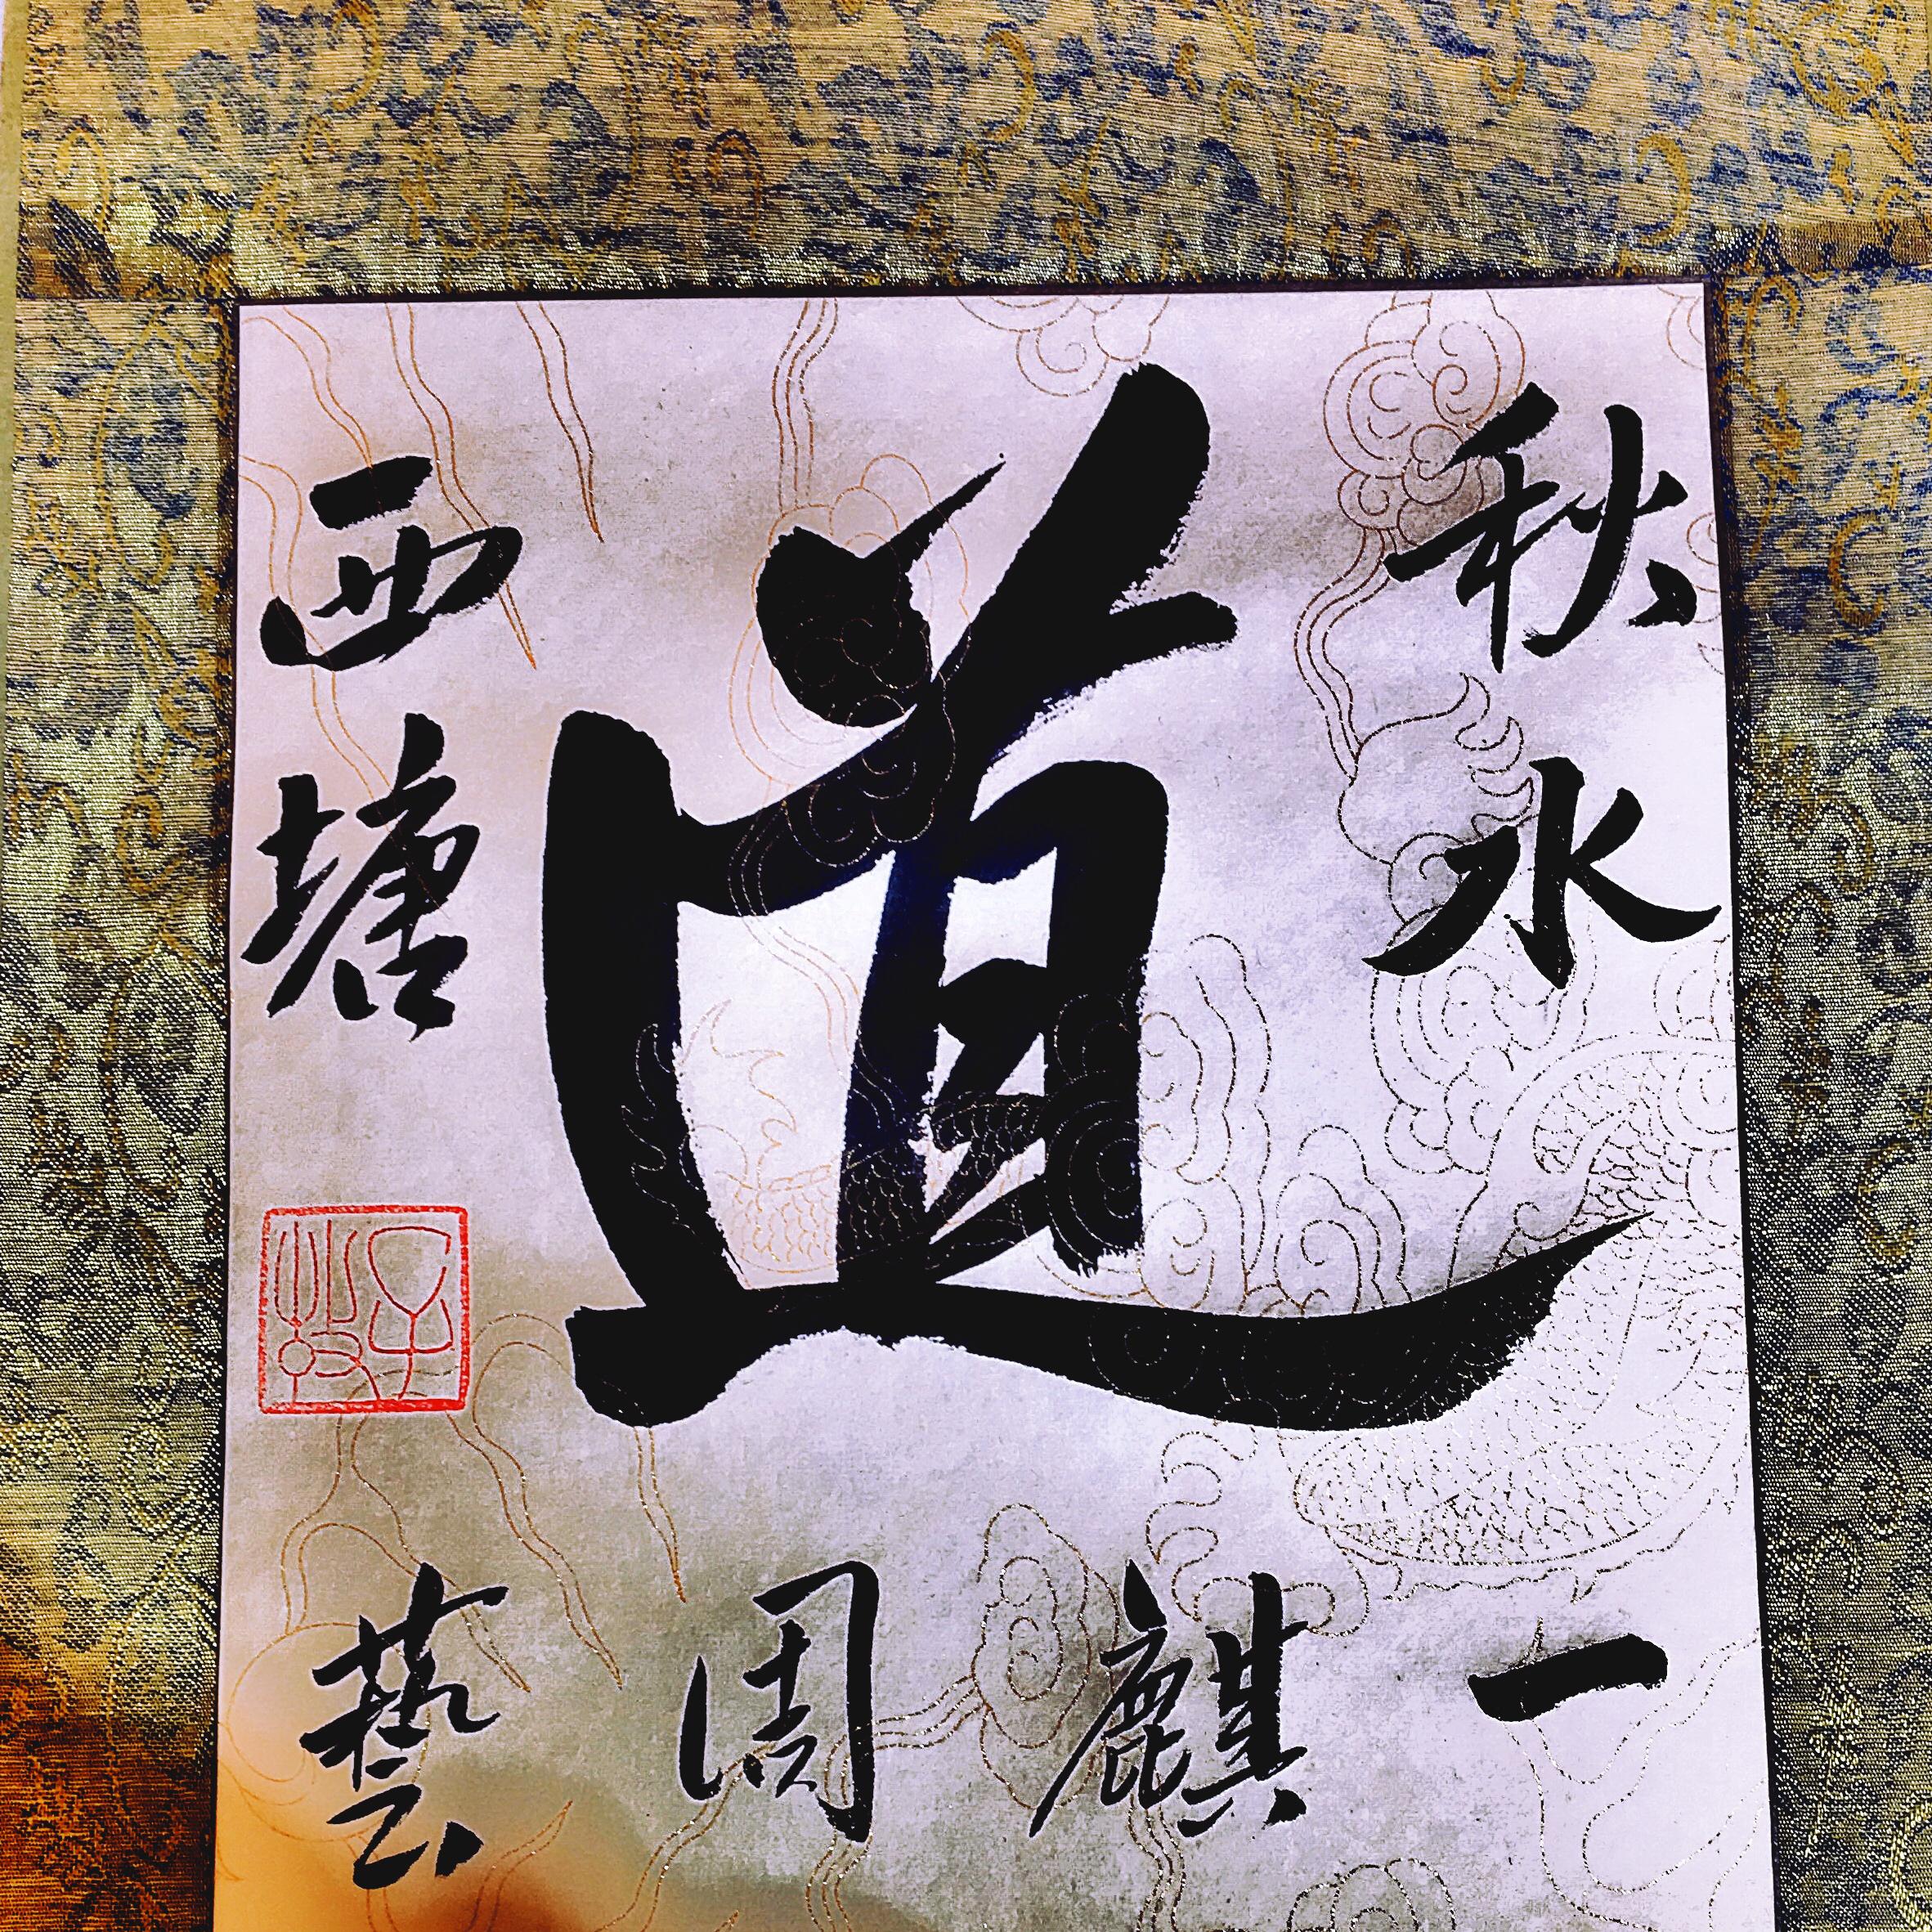 秋水
道
西塘
一
麒
周
藝